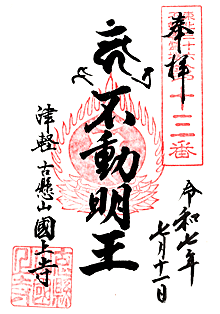 奉拝
十二番
不動明王
津軽 古懸山 國上寺
令和七年
七月十一日